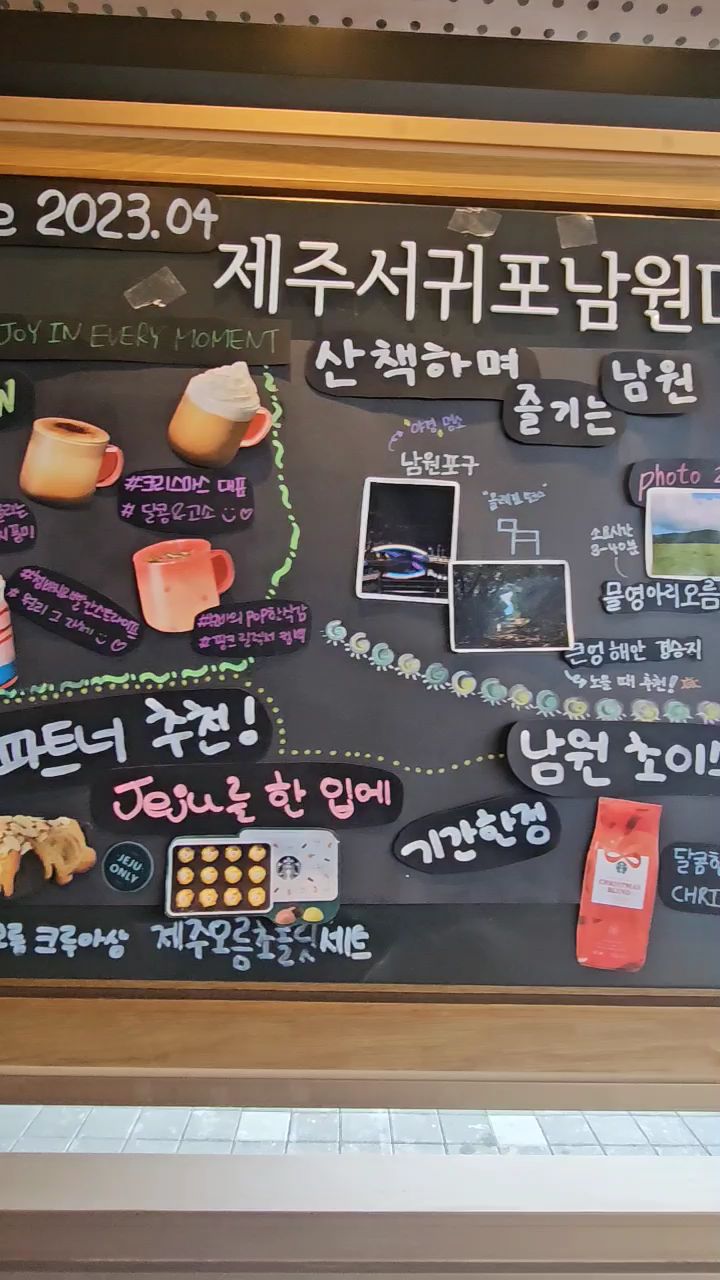 e 2023.04
제주서귀포남원
JOY IN EVERY MOMENT
산책하며
즐기는
남원
N
야경 명소
남원포구
photo
#크리스마스 대표
# 달콤&고소
소요시간
3-40분
물영아리오름
# 핑크
큰엉해안 경승지
노을 때 추천!
파트너 추천!
남원 초이스
Jeju를 한 입에
기간한정
JEJU
ONLY
CHRISTMAS
BLEND
달콤한
CHRI
오름 크루아상
제주오름초콜릿세트